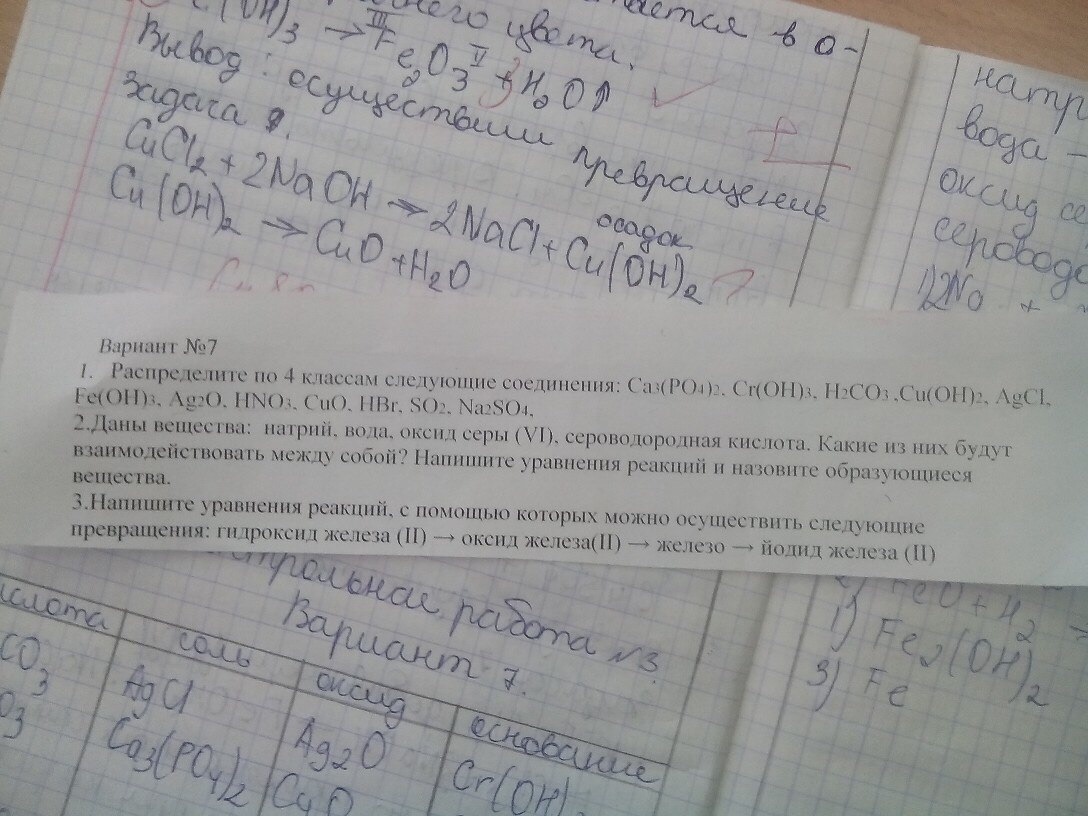 ется в о-
цвета.
(OH)3 → Fe2O3 + H2O↑
III II 3
Вывод: осуществили превращение
Задача
CuCl2 + 2NaOH → 2NaCl + Cu(OH)2
осадок
Cu(OH)2 → CuO + H2O
натри
вода –
оксид се
сероводо
1)2Na +
Вариант №7
1. Распределите по 4 классам следующие соединения: Ca3(PO4)2, Cr(OH)3, H2CO3 ,Cu(OH)2, AgCl,
Fe(OH)3, Ag2O, HNO3, CuO, HBr, SO2, Na2SO4,
2.Даны вещества: натрий, вода, оксид серы (VI), сероводородная кислота. Какие из них будут
взаимодействовать между собой? Напишите уравнения реакций и назовите образующиеся
вещества.
3.Напишите уравнения реакций, с помощью которых можно осуществить следующие
превращения: гидроксид железа (II) → оксид железа(II) → железо → йодид железа (II)
трольная работа №3.
Вариант 7.
ислота соль оксид основание
CO3 AgCl Ag2O Cr(OH)
O3 Ca3(PO4)2 CuO
FeO + H2
1) Fe2(OH)2
3) Fe